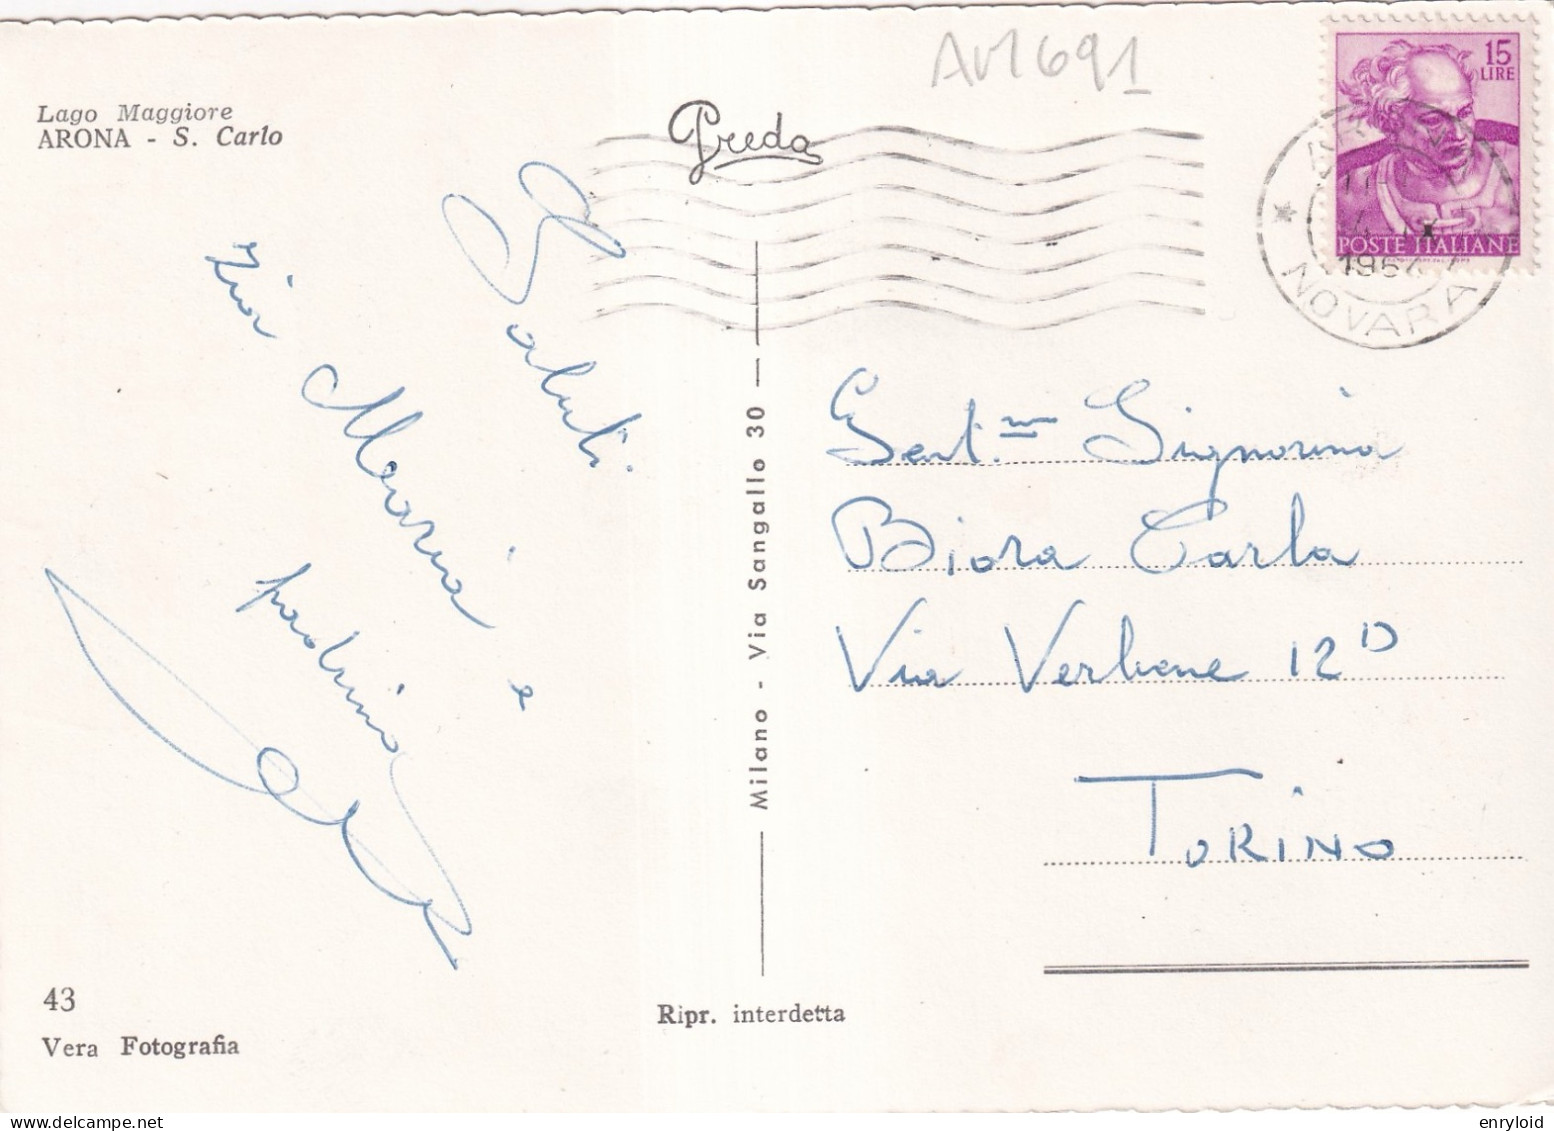 Lago Maggiore
ARONA - S. Carlo
Preda
15
LIRE
POSTE ITALIANE
NOVARA
Saluti
Zia Maria e
paolina
Milano - Via Sangallo 30
Gent.ma Signorina
Biora Carla
Via Verbene 12 D
TORINO
43
Vera Fotografia
Ripr. interdetta
enryloid